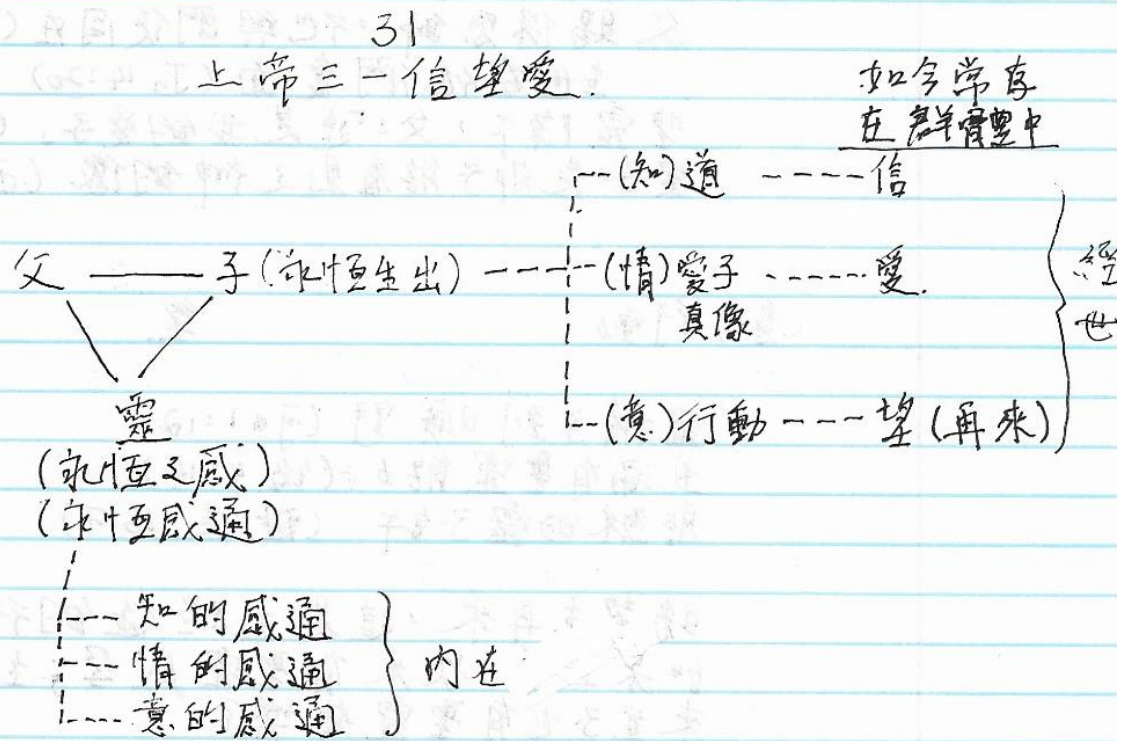 31
上帝三一信望愛.
如今常存
在群體中
(知)道 ---- 信
父 —— 子(永恒生出) ---- (情)愛子 ----- 愛.
真像
經世
(意)行動 --- 望(再來)
靈
(永恒之感)
(永恒感通)
知的感通
情的感通 内在
意的感通